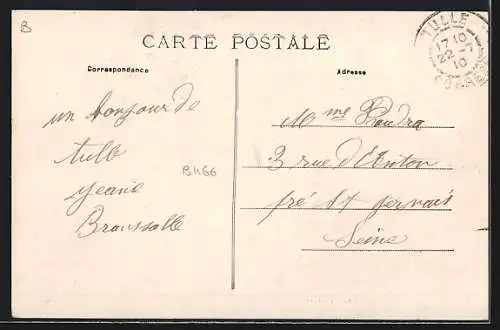 B
CARTE POSTALE
TULLE
17 10
22-7
10
CORRÈZE
Correspondance
Adresse
un bonjour de
tulle
B466
Mme
3 rue
pré St gervais
Seine